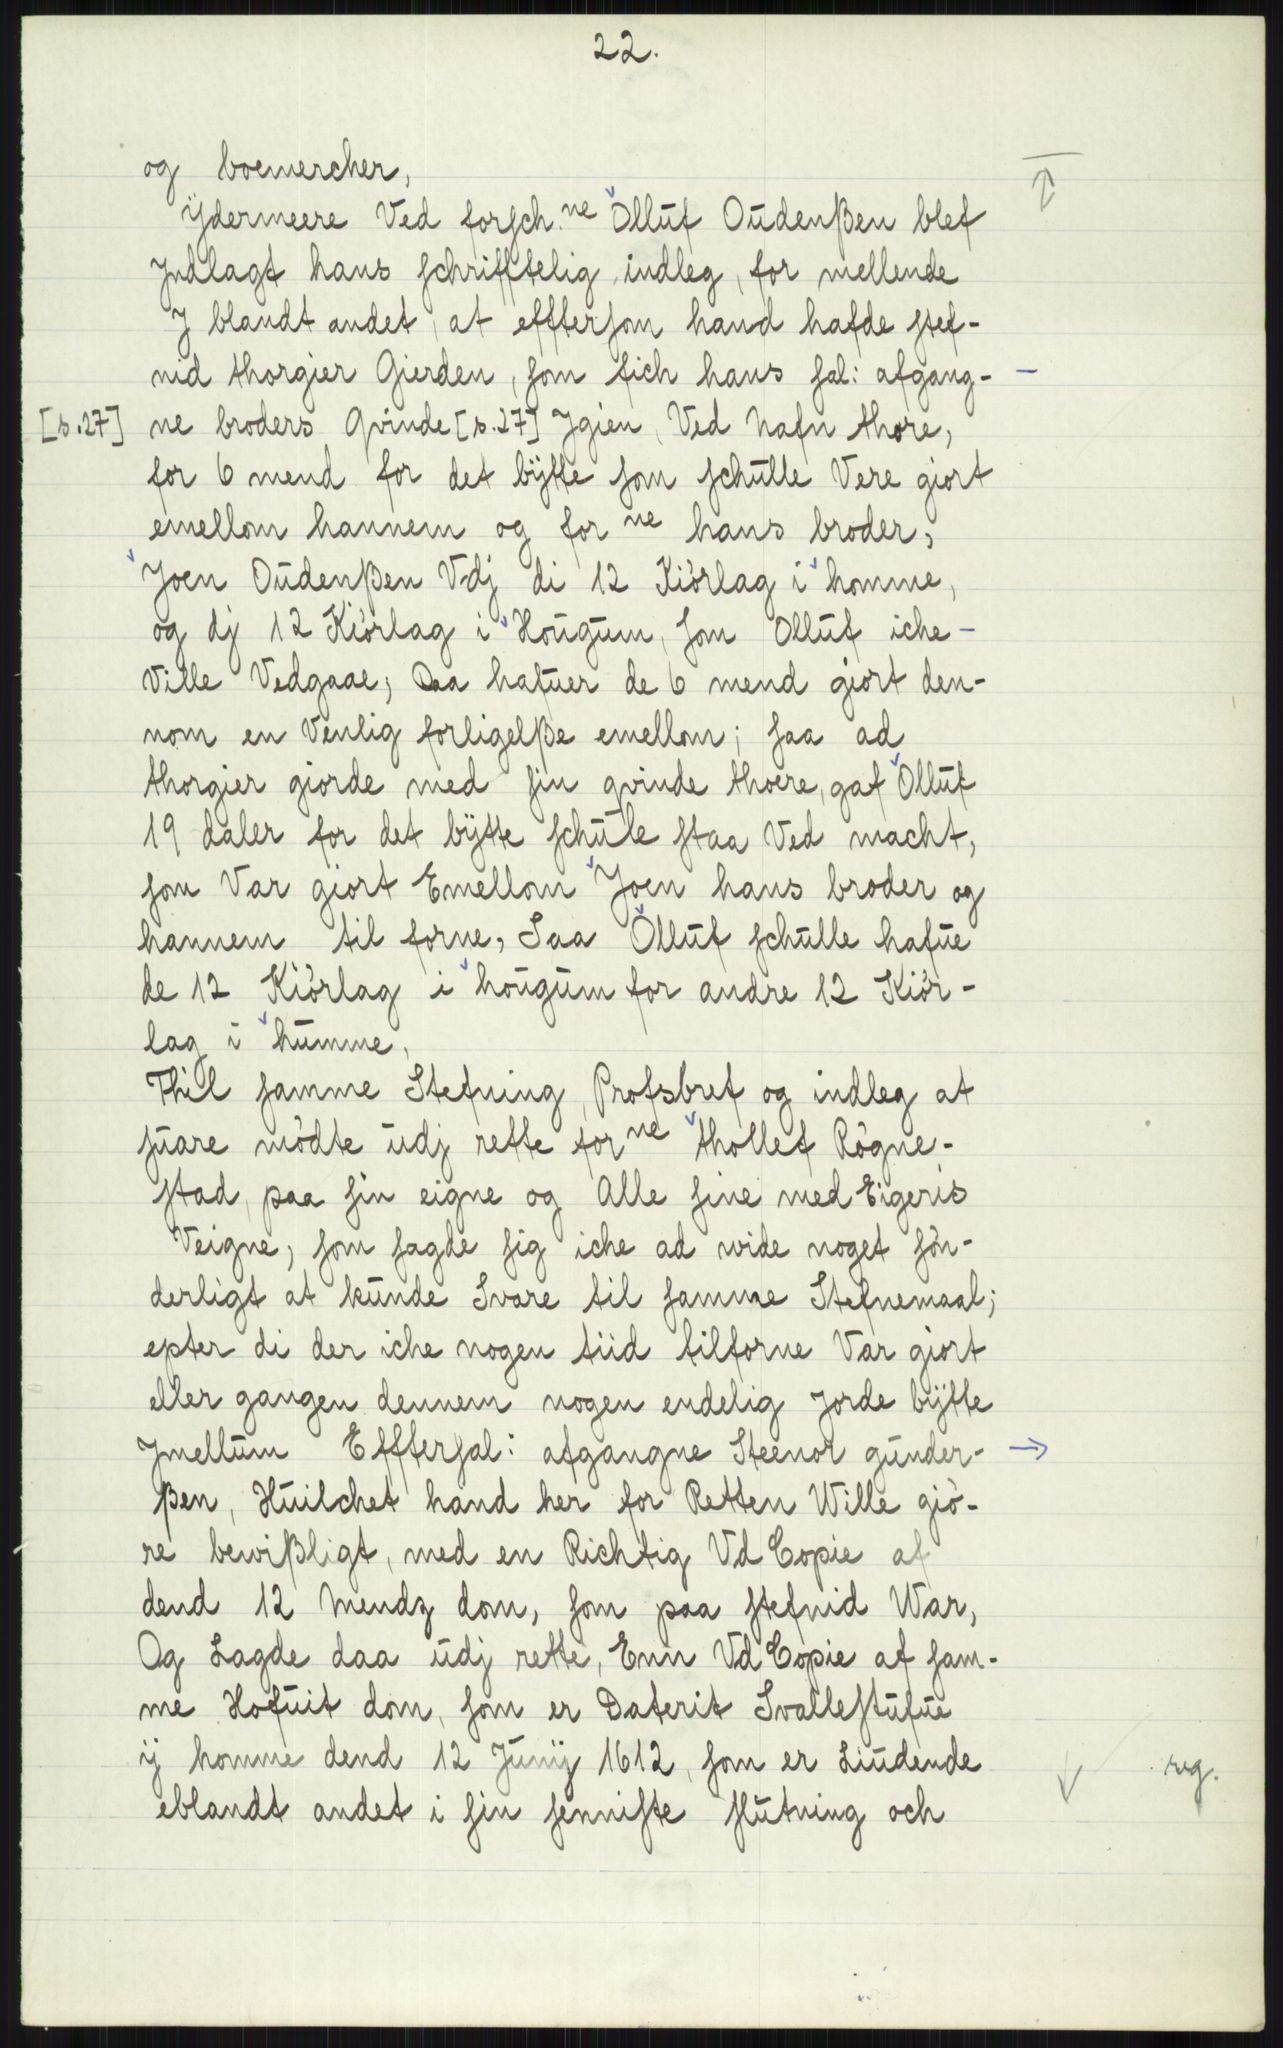 22.
og boemercher,
ÿdermeere Ved forsch.ne Olluf Oudenßen blef
Jndlagt hans schrifftelig indleg, for mellende
J blandt andet, at efftersom hand hafde stef-
nid thorgier Gierden, som fich hans sal: afgang-
[s.27] ne broders Qvinde [s.27] Jgien, Ved Nafn thore,
for 6 mend for det bÿtte som schulle Vere giort
emellom hannem og for ne hans broder,
Joen Oudenßen Vdj di 12 Kiörlag i homme,
og dj 12 Kiörlag i Hougum, som Olluf iche
Ville Vedgaae; Daa hafuer de 6 mend giort den-
nom en Venlig forligelße emellom; saa ad
thorgier giorde med sin qvinde thoere, gaf Olluf
19 daler for det bÿtte schule staa Ved macht,
som Var giort Emellom Joen hans broder og
hannem til forne, Saa Olluf schulle hafue
de 12 Kiörlag i hougum for andre 12 Kiör-
lag i humme,
Thil samme Stefning, Profsbref og indleg at
suare mödte udj rette for ne thollef Rögne-
stad, paa sin eigne og Alle sine med Eigeris
Veigne, som sagde sig iche ad wide noget sön-
derligt at kunde Svare til samme Stefnemaal;
epter di der iche nogen tiid tilforne Var giort
eller gangen dennem nogen endelig jorde bÿtte
Jmellum Efftersal: afgangne Steenor gunder-
ßen, Huilchet hand her for Retten Wille giö-
re bewißligt, med en Richtig Vd Copie af
dend 12 Mendz dom, som paa stefnid War,
Og Lagde daa udj rette, Enn Vd Copie af sam-
me Hofuit dom, som er Daterit Svallestufue
ij homme dend 12 Junij 1612, som er Liudende
reg.
eblandt andet i sin senniste slutning och